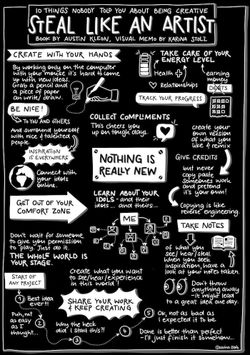 10 THINGS NOBODY TOLD YOU ABOUT BEING CREATIVE
STEAL LIKE AN ARTIST
BOOK BY AUSTIN KLEON, VISUAL MEMO BY KARINA STOLZ
CREATE WITH YOUR HANDS
By working only on the computer
with your mouse it's hard to come
up with new ideas.
Grab a pencil and
a piece of paper
an write / draw.
TAKE CARE OF YOUR
ENERGY LEVEL
Health
earning
money
relationships
DEBTS
TRACK YOUR PROGRESS
BE NICE!
TO YOU AND OTHERS
And surround yourself
with nice & talented
people.
COLLECT COMPLIMENTS
This cheers you
up on tough days.
create your
own version
of what
you like
& remix
INSPIRATION
IS EVERYWHERE
Connect with
your idols
online.
NOTHING IS
REALLY NEW
GIVE CREDITS
but never
copy paste
someones work
and pretend
it's your own!
Copying is like
reverse engineering
GET OUT OF YOUR
COMFORT ZONE
LEARN ABOUT YOUR
IDOLS - and their
idols ... and theirs...
ME
TAKE NOTES
of what you
see / hear
when you
seek inspiration, have a
look at your notes taken.
Don't wait for someone
to give you permission
to play. Just do it.
THE WHOLE WORLD IS
YOUR STAGE.
Create what you want
to see / hear / experience
in this world!
Don't throw
anything away
- it might lead
to a great idea one day.
START OF
ANY PROJECT
Best idea
ever!!
SHARE YOUR WORK
& KEEP CREATING
Puh, not
as easy
as I
thought...
Why the heck
did I start this?!
Ok, not as bad as
I expected it to be.
Done is better than perfect
- I'll just finish it somehow...